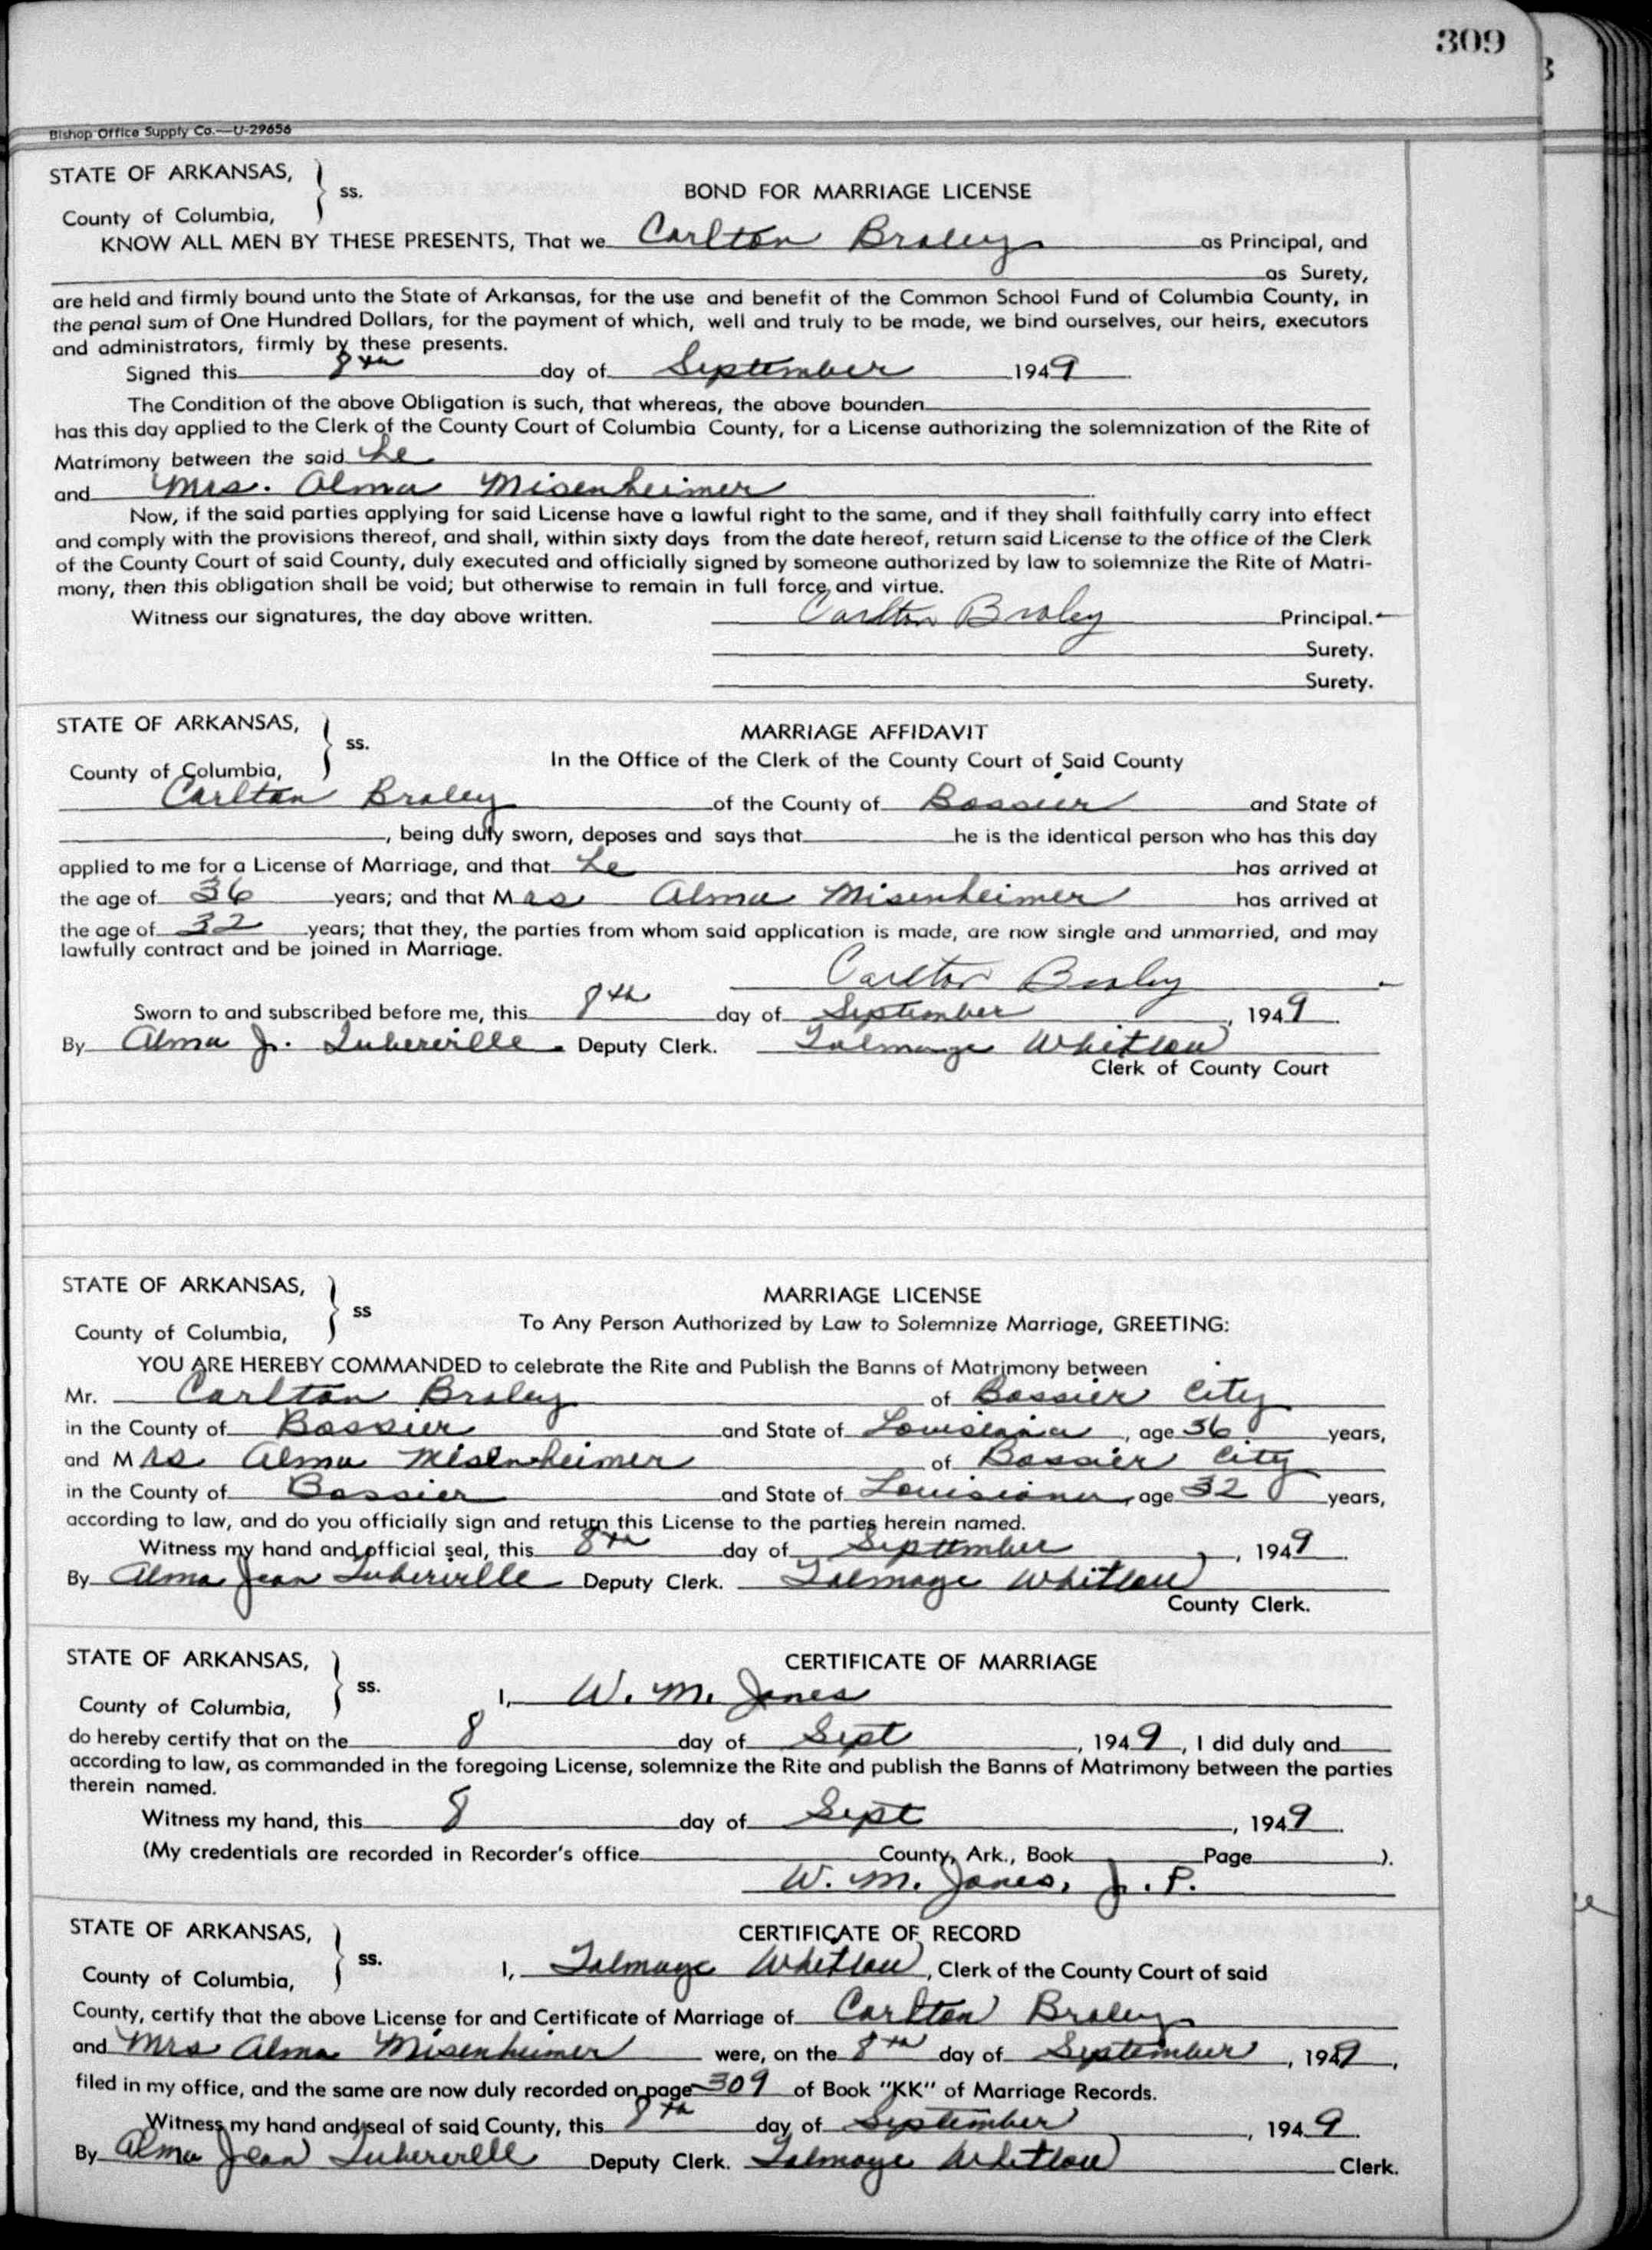 309
Bishop Office Supply Co.—U-29656
STATE OF ARKANSAS,
ss.
BOND FOR MARRIAGE LICENSE
County of Columbia,
KNOW ALL MEN BY THESE PRESENTS, That we Carlton Braley as Principal, and
as Surety,
are held and firmly bound unto the State of Arkansas, for the use and benefit of the Common School Fund of Columbia County, in
the penal sum of One Hundred Dollars, for the payment of which, well and truly to be made, we bind ourselves, our heirs, executors
and administrators, firmly by these presents.
Signed this 8th day of September 1949
The Condition of the above Obligation is such, that whereas, the above bounden
has this day applied to the Clerk of the County Court of Columbia County, for a License authorizing the solemnization of the Rite of
Matrimony between the said he
and Mrs. Alma Misenheimer
Now, if the said parties applying for said License have a lawful right to the same, and if they shall faithfully carry into effect
and comply with the provisions thereof, and shall, within sixty days from the date hereof, return said License to the office of the Clerk
of the County Court of said County, duly executed and officially signed by someone authorized by law to solemnize the Rite of Matri-
mony, then this obligation shall be void; but otherwise to remain in full force and virtue.
Witness our signatures, the day above written. Carlton Braley Principal.
Surety.
Surety.
STATE OF ARKANSAS,
ss.
MARRIAGE AFFIDAVIT
County of Columbia,
In the Office of the Clerk of the County Court of Said County
Carlton Braley of the County of Bossier and State of
, being duly sworn, deposes and says that he is the identical person who has this day
applied to me for a License of Marriage, and that he has arrived at
the age of 36 years; and that Mrs Alma Misenheimer has arrived at
the age of 32 years; that they, the parties from whom said application is made, are now single and unmarried, and may
lawfully contract and be joined in Marriage.
Carlton Braley
Sworn to and subscribed before me, this 8th day of September, 1949.
By Alma J. Tuberville Deputy Clerk. Talmage Whitlow
Clerk of County Court
STATE OF ARKANSAS,
ss
MARRIAGE LICENSE
County of Columbia,
To Any Person Authorized by Law to Solemnize Marriage, GREETING:
YOU ARE HEREBY COMMANDED to celebrate the Rite and Publish the Banns of Matrimony between
Mr. Carlton Braley of Bossier City
in the County of Bossier and State of Louisiana, age 36 years,
and Mrs Alma Misenheimer of Bossier City
in the County of Bossier and State of Louisiana, age 32 years,
according to law, and do you officially sign and return this License to the parties herein named.
Witness my hand and official seal, this 8th day of September, 1949.
By Alma Jean Tuberville Deputy Clerk. Talmage Whitlow
County Clerk.
STATE OF ARKANSAS,
ss.
CERTIFICATE OF MARRIAGE
County of Columbia,
I, W. M. Jones
do hereby certify that on the 8 day of Sept, 1949, I did duly and
according to law, as commanded in the foregoing License, solemnize the Rite and publish the Banns of Matrimony between the parties
therein named.
Witness my hand, this 8 day of Sept, 1949.
(My credentials are recorded in Recorder's office County, Ark., Book Page ).
W. M. Jones, J. P.
STATE OF ARKANSAS,
ss.
CERTIFICATE OF RECORD
County of Columbia,
I, Talmage Whitlow, Clerk of the County Court of said
County, certify that the above License for and Certificate of Marriage of Carlton Braley
and Mrs Alma Misenheimer were, on the 8th day of September, 1949,
filed in my office, and the same are now duly recorded on page 309 of Book "KK" of Marriage Records.
Witness my hand and seal of said County, this 8th day of September, 1949.
By Alma Jean Tuberville Deputy Clerk. Talmage Whitlow Clerk.